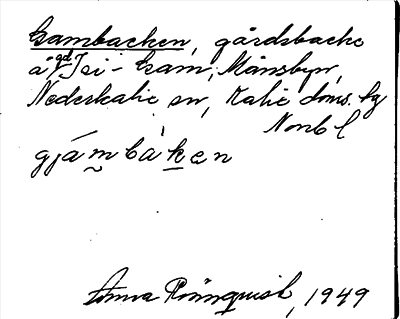 Gambacken, gårdsbacke
å gd Isi-Gam, Månsbyn,
Nederkalix sn, Kalix doms. tg
Nonb l
gjámbàken
Anna Rönnquist, 1949